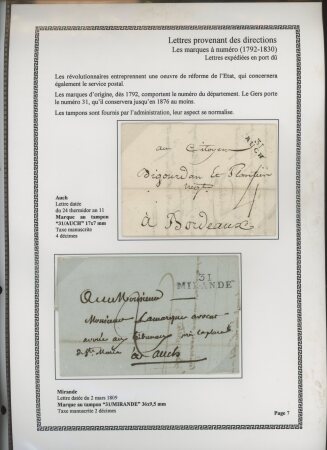 Lettres provenant des directions
Les marques à numéro (1792-1830)
Lettres expédiées en port dû
Les révolutionnaires entreprennent une oeuvre de réforme de l'Etat, qui concernera
également le service postal.
Les marques d'origine, dès 1792, comportent le numéro du département. Le Gers porte
le numéro 31, qu'il conservera jusqu'en 1876 au moins.
Les tampons sont fournis par l'administration, leur aspect se normalise.
31
AUCH
au Citoyen
Bigourdan le
à Bordeaux
4
Auch
Lettre datée
du 24 thermidor an 11
Marque au tampon
"31/AUCH" 17x7 mm
Taxe manuscrite
4 décimes
31
MIRANDE
2
Monsieur
Monsieur Lamarque avocat
avoué au
à auch
Mirande
Lettre datée du 2 mars 1809
Marque au tampon "31/MIRANDE" 36x9,5 mm
Taxe manuscrite 2 décimes
Page 7